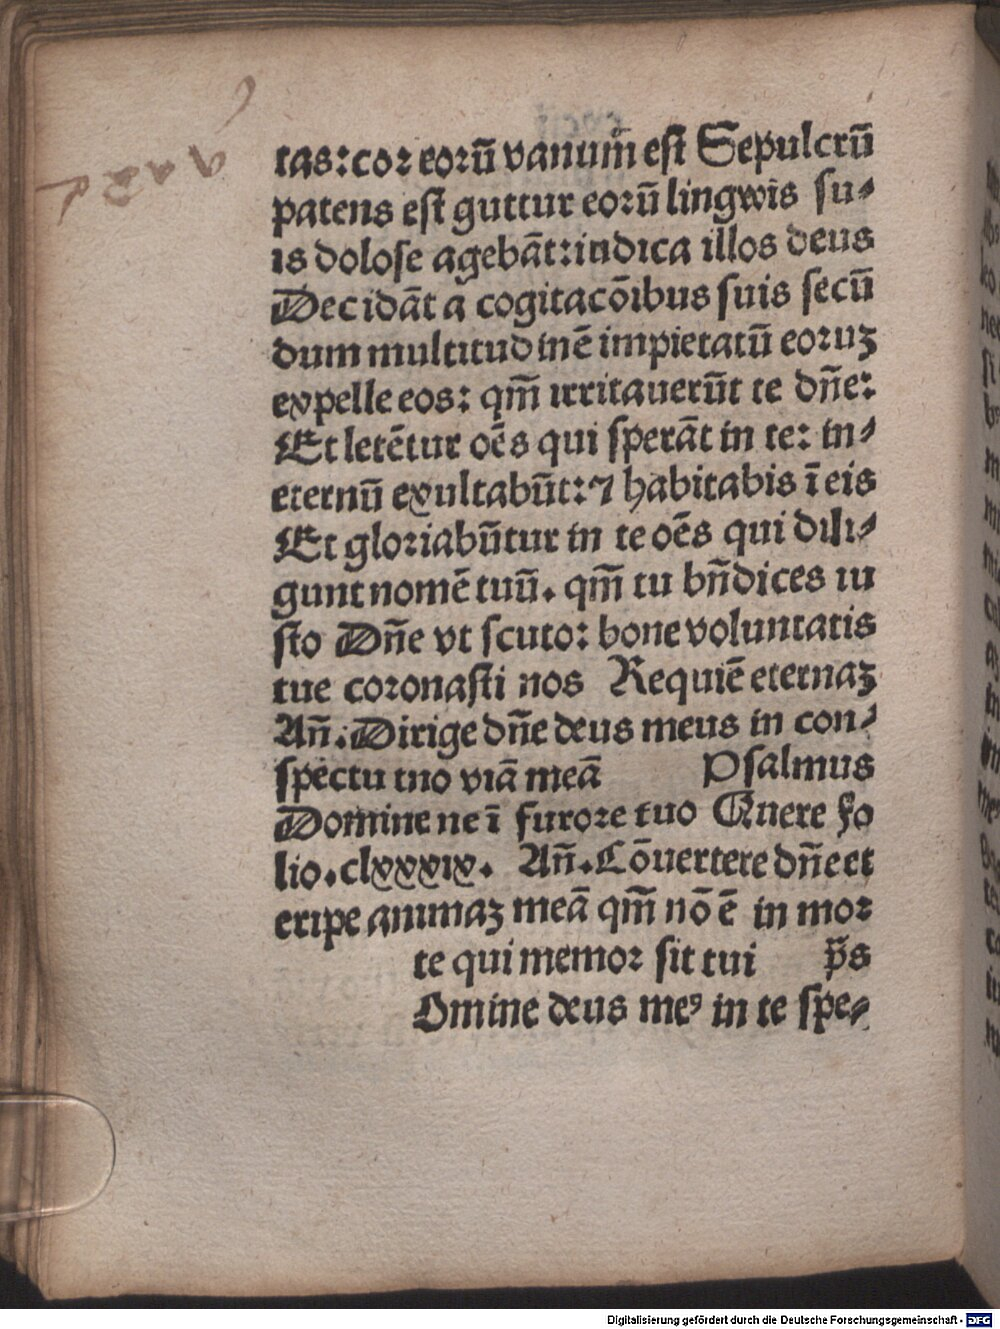 tas: cor eorū vanum̄ est Sepulcrū
patens est guttur eorū lingwis su⸗
is dolose agebāt: iudica illos deus
Decidāt a cogitacōibus suis secū
dum multitudinē impietatū eoruꝫ
expelle eos: qm̄ irritauerūt te dn̄e:
Et letētur oēs qui sperāt in te: in⸗
eternū exultabūt: ⁊ habitabis ī eis
Et gloriabūtur in te oēs qui dili⸗
gunt nomē tuū. qm̄ tu bn̄dices iu
sto Dn̄e vt scuto: bone voluntatis
tue coronasti nos Requiē eternaꝫ
An̄. Dirige dn̄e deus meus in con⸗
spectu tno viā meā Psalmus
Domine ne ī furore tuo Quere fo
lio. clxxxix. An̄. Cōuertere dn̄e et
eripe animaꝫ meā qm̄ nō ē in mor
te qui memor sit tui p̄s
Omine deus meꝰ in te spe⸗
Digitalisierung gefördert durch die Deutsche Forschungsgemeinschaft - DFG